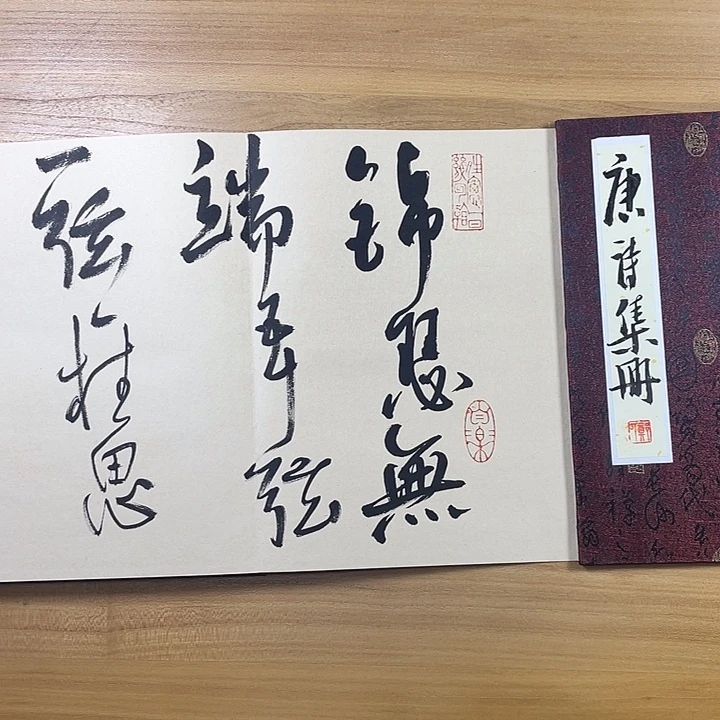 唐詩集冊
錦瑟無
端五十弦
一弦柱思